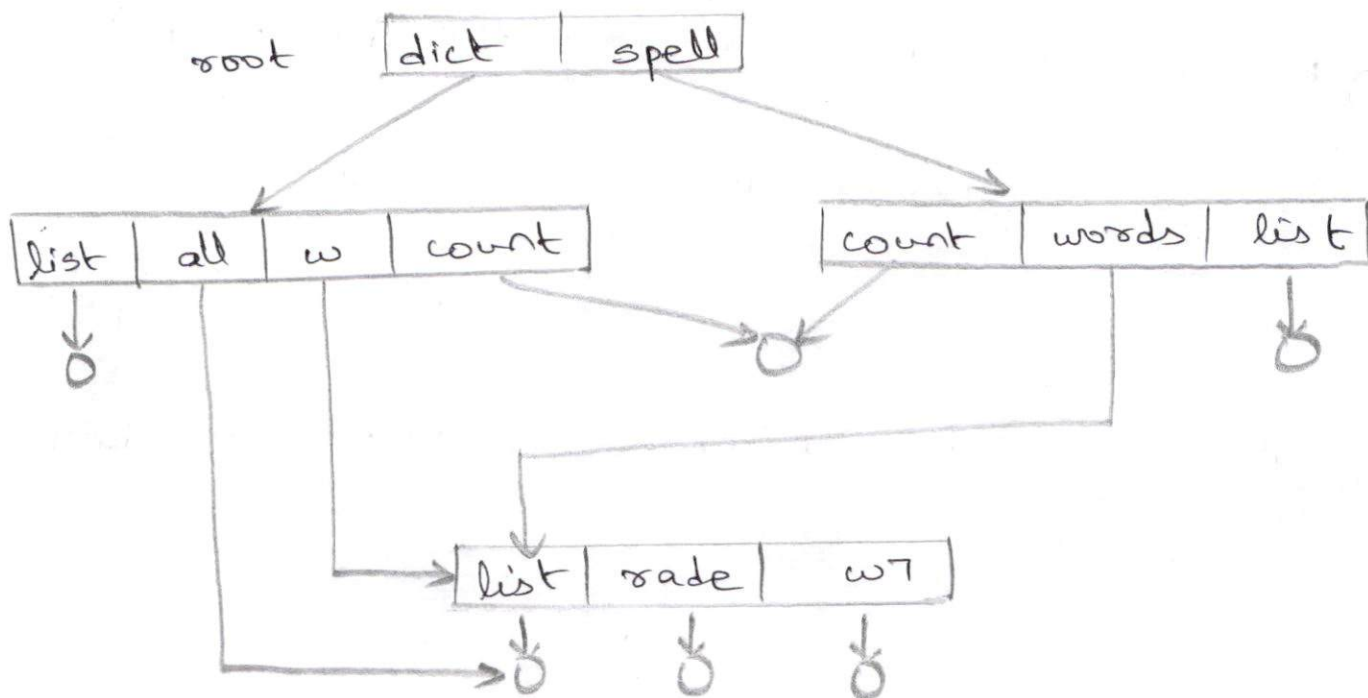 root dict spell
list all w count count words list
list rade w7